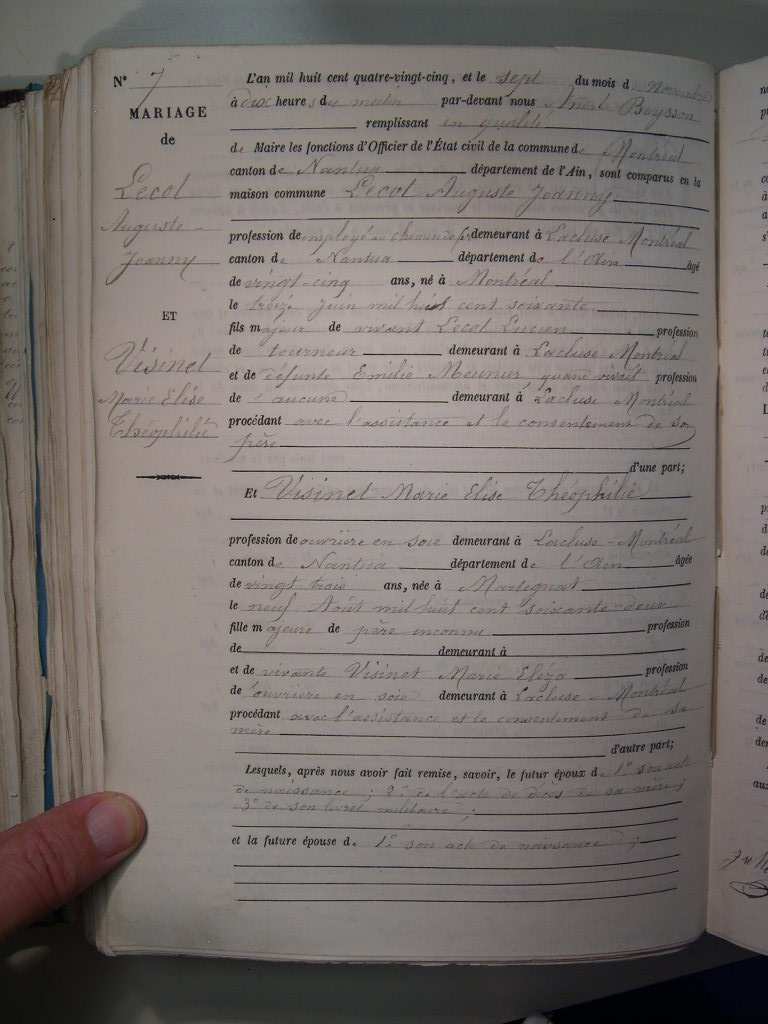 N° 7
MARIAGE
de
Lecol
Auguste
Joanny
ET
Visinet
Marie Elise
Théophilie
L'an mil huit cent quatre-vingt-cinq, et le sept du mois de Novembre
à dix heures du matin par-devant nous Aimé Buysson
remplissant en qualité
de Maire les fonctions d'Officier de l'État civil de la commune de Montréal
canton de Nantua département de l'Ain, sont comparus en la
maison commune Lecol Auguste Joanny
profession de employé au chemin de fer demeurant à Lacluse Montréal
canton de Nantua département de l'Ain âgé
de vingt-cinq ans, né à Montréal
le treize Juin mil huit cent soixante
fils majeur de vivant Lecol Lucien profession
de tourneur demeurant à Lacluse Montréal
et de défunte Emilie Meunier, quand vivait profession
de aucune demeurant à Lacluse Montréal
procédant avec l'assistance et le consentement de son
père
d'une part;
Et Visinet Marie Elise Théophilie
profession de ouvrière en soie demeurant à Lacluse - Montréal
canton de Nantua département de l'Ain âgée
de vingt trois ans, née à Martignat
le neuf Août mil huit cent soixante-deux
fille majeure de père inconnu profession
de demeurant à
et de vivante Visinet Marie Eléza profession
de ouvrière en soie demeurant à Lacluse - Montréal
procédant avec l'assistance et le consentement de sa
mère
d'autre part;
Lesquels, après nous avoir fait remise, savoir, le futur époux de 1° son acte
de naissance ; 2° de l'acte de décès de sa mère ;
3° de son livret militaire ;
et la future épouse de 1° son acte de naissance ;